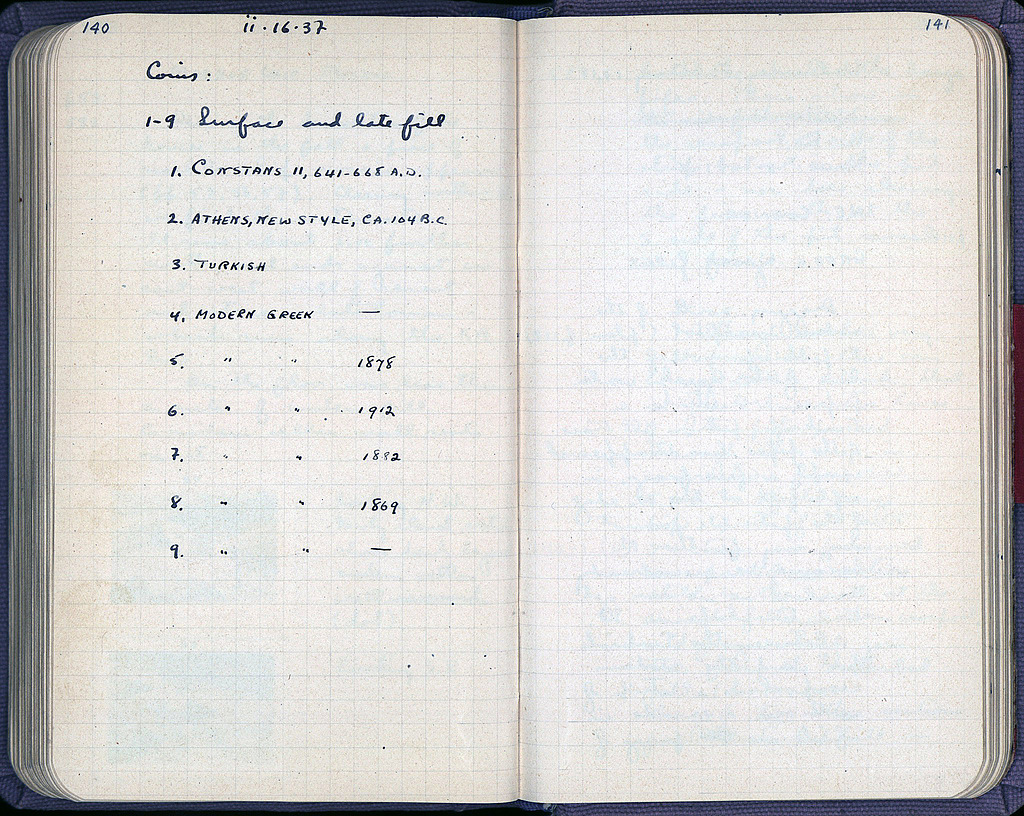 140
ii·16·37
Coins:
1-9 Surface and late fill
1. CONSTANS II, 641-668 A.D.
2. ATHENS, NEW STYLE, CA. 104 B.C.
3. TURKISH
4. MODERN GREEK —
5. " " 1878
6. " " 1912
7. " " 1882
8. " " 1869
9. " " —
141